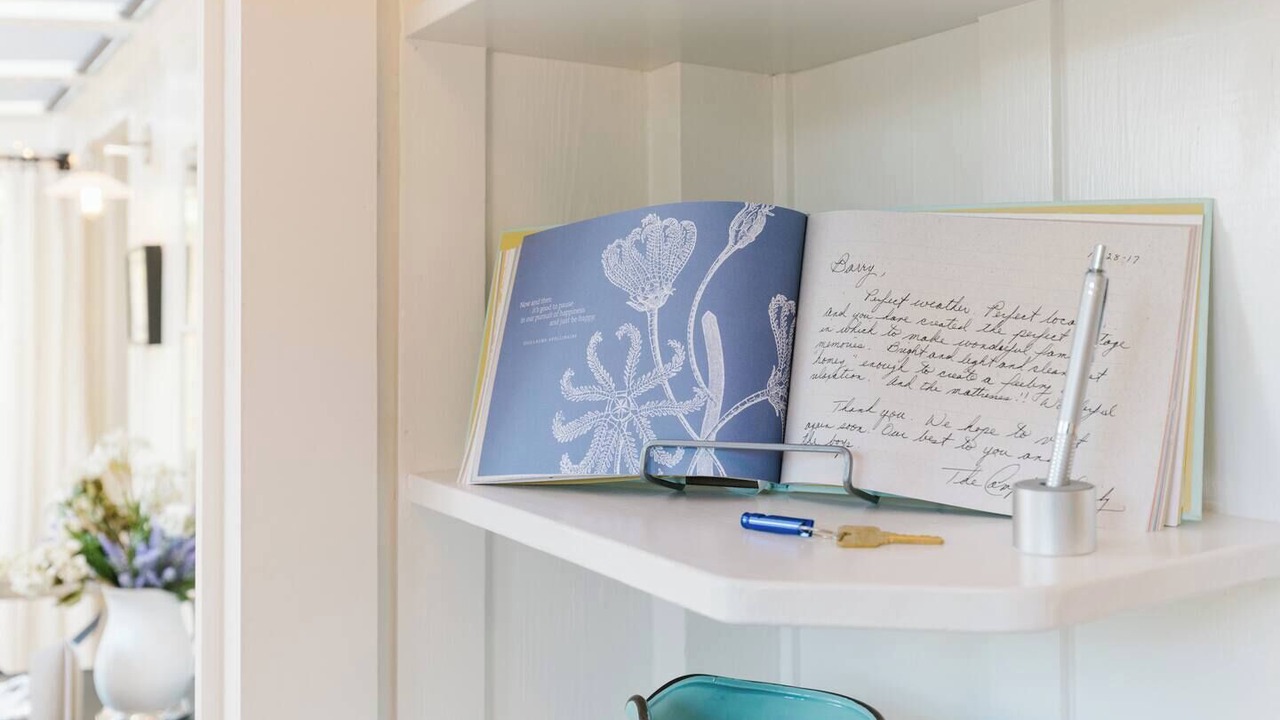 Now and then
it's good to pause
in our pursuit of happiness
and just be happy.
28·17
Barry,
Perfect weather Perfect loca
and you have created the perfect tage
in which to make wonderful fam
memories. Bright and light and clean
"honey" enough to create a feeling
relaxation. And the mattresses!! Wonderful
Thank you. We hope to visit
again soon. Our best to you and
the boys
The